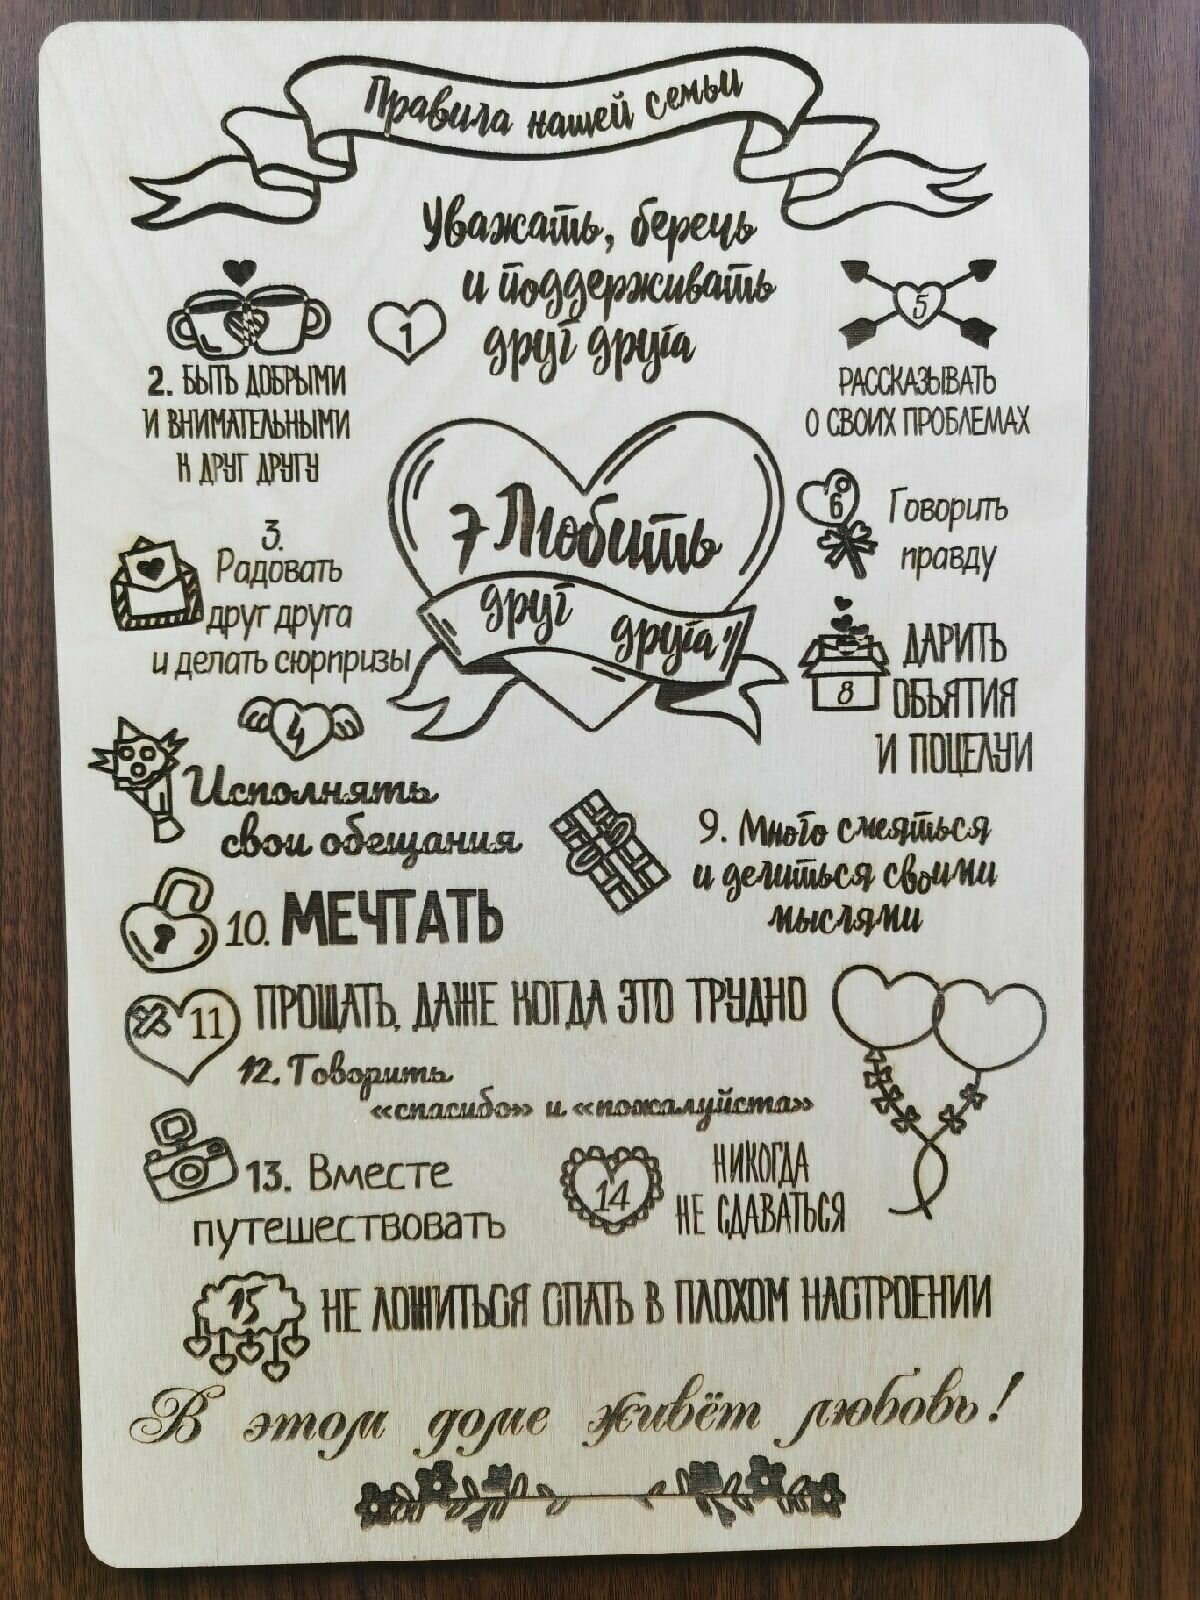 Правила нашей семьи
1
Уважать, беречь
и поддерживать
друг друга
2. БЫТЬ ДОБРЫМИ
И ВНИМАТЕЛЬНЫМИ
К ДРУГ ДРУГУ
3.
Радовать
друг друга
и делать сюрпризы
4
Исполнять
свои обещания
5
РАССКАЗЫВАТЬ
О СВОИХ ПРОБЛЕМАХ
6
Говорить
правду
7 Любить
друг
друга
8
ДАРИТЬ
ОБЪЯТИЯ
И ПОЦЕЛУИ
9. Много смеяться
и делиться своими
мыслями
10. МЕЧТАТЬ
11
ПРОЩАТЬ, ДАЖЕ КОГДА ЭТО ТРУДНО
12. Говорить
«спасибо» и «пожалуйста»
13. Вместе
путешествовать
14
НИКОГДА
НЕ СДАВАТЬСЯ
15
НЕ ЛОЖИТЬСЯ СПАТЬ В ПЛОХОМ НАСТРОЕНИИ
В этом доме живёт любовь!